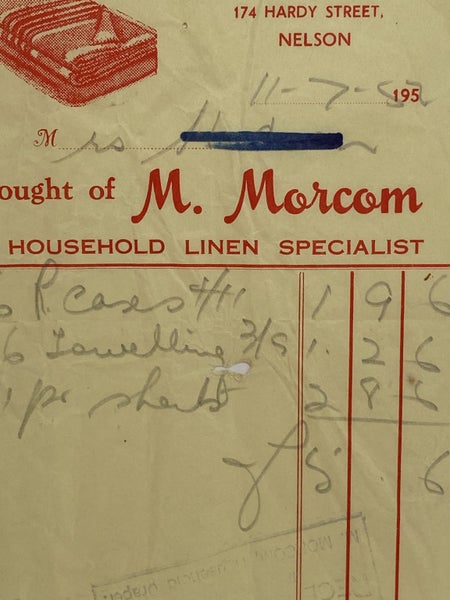 174 HARDY STREET,
NELSON
11-7-1952
Mrs
ought of M. Morcom
HOUSEHOLD LINEN SPECIALIST
P. cases 4/11 1 9 6
6 Towelling 3/9 1. 2 6
1 pr sheets 2 8 6
£5 6
M. MORCOM, Household Draper